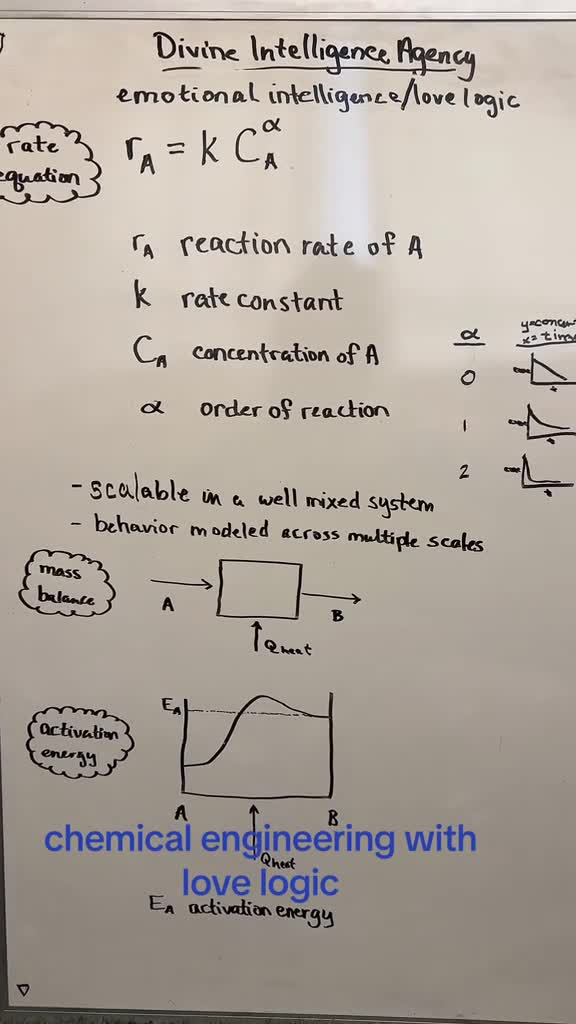 Divine Intelligence Agency
emotional intelligence/love logic
rate
equation
r_A = k C_A^α
r_A reaction rate of A
k rate constant
C_A concentration of A
α order of reaction
α
x= time
0
1
2
- scalable in a well mixed system
- behavior modeled across multiple scales
mass
balance
A
B
Q heat
activation
energy
E_A
A
B
Q heat
chemical engineering with
love logic
E_A activation energy